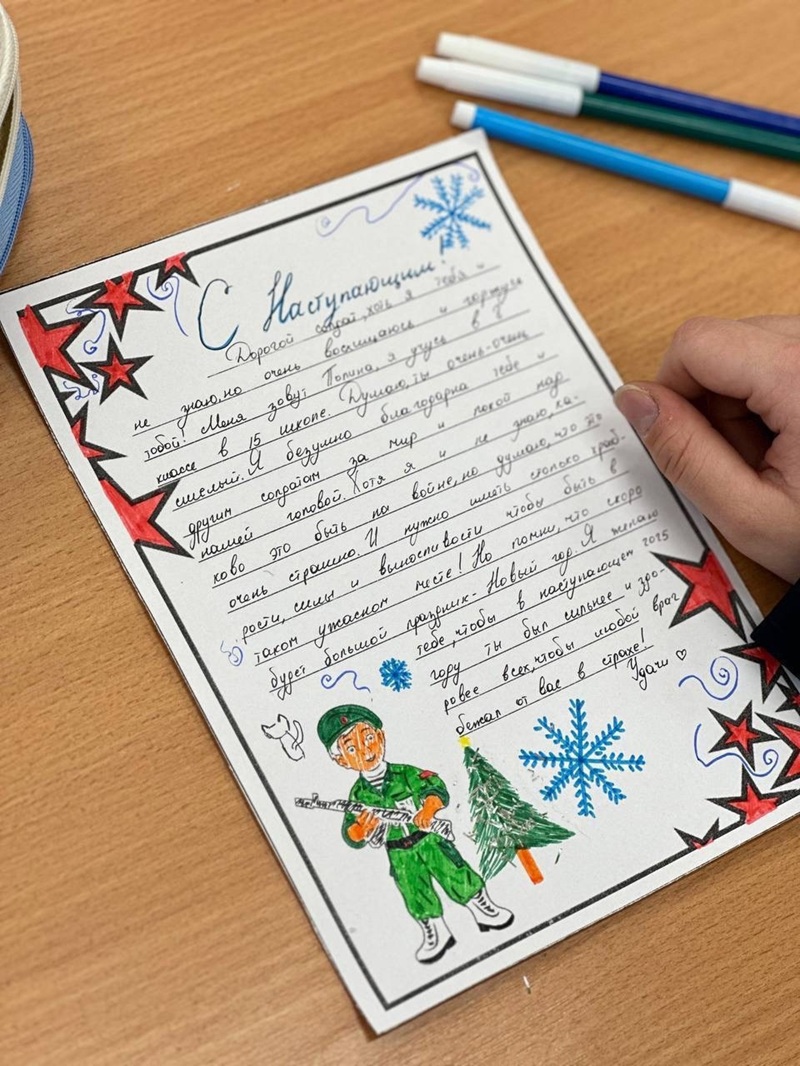 С Наступающим!
Дорогой солдат, хоть я тебя и
не знаю, но очень восхищаюсь и горжусь
тобой! Меня зовут Полина, я учусь в 8
классе в 15 школе. Думаю, ты очень-очень
смелый. Я безумно благодарна тебе и
другим солдатам за мир и покой над
нашей головой. Хотя я и не знаю, ка-
ково это быть на войне, но думаю, что это
очень страшно. И нужно иметь столько храб-
рости, силы и выносливости чтобы быть в
таком ужасном месте! Но помни, что скоро
будет большой праздник - Новый год. Я желаю
тебе, чтобы в наступающем 2025
году ты был сильнее и здо-
ровее всех, чтобы любой враг
бежал от вас в страхе!
Удачи ♡